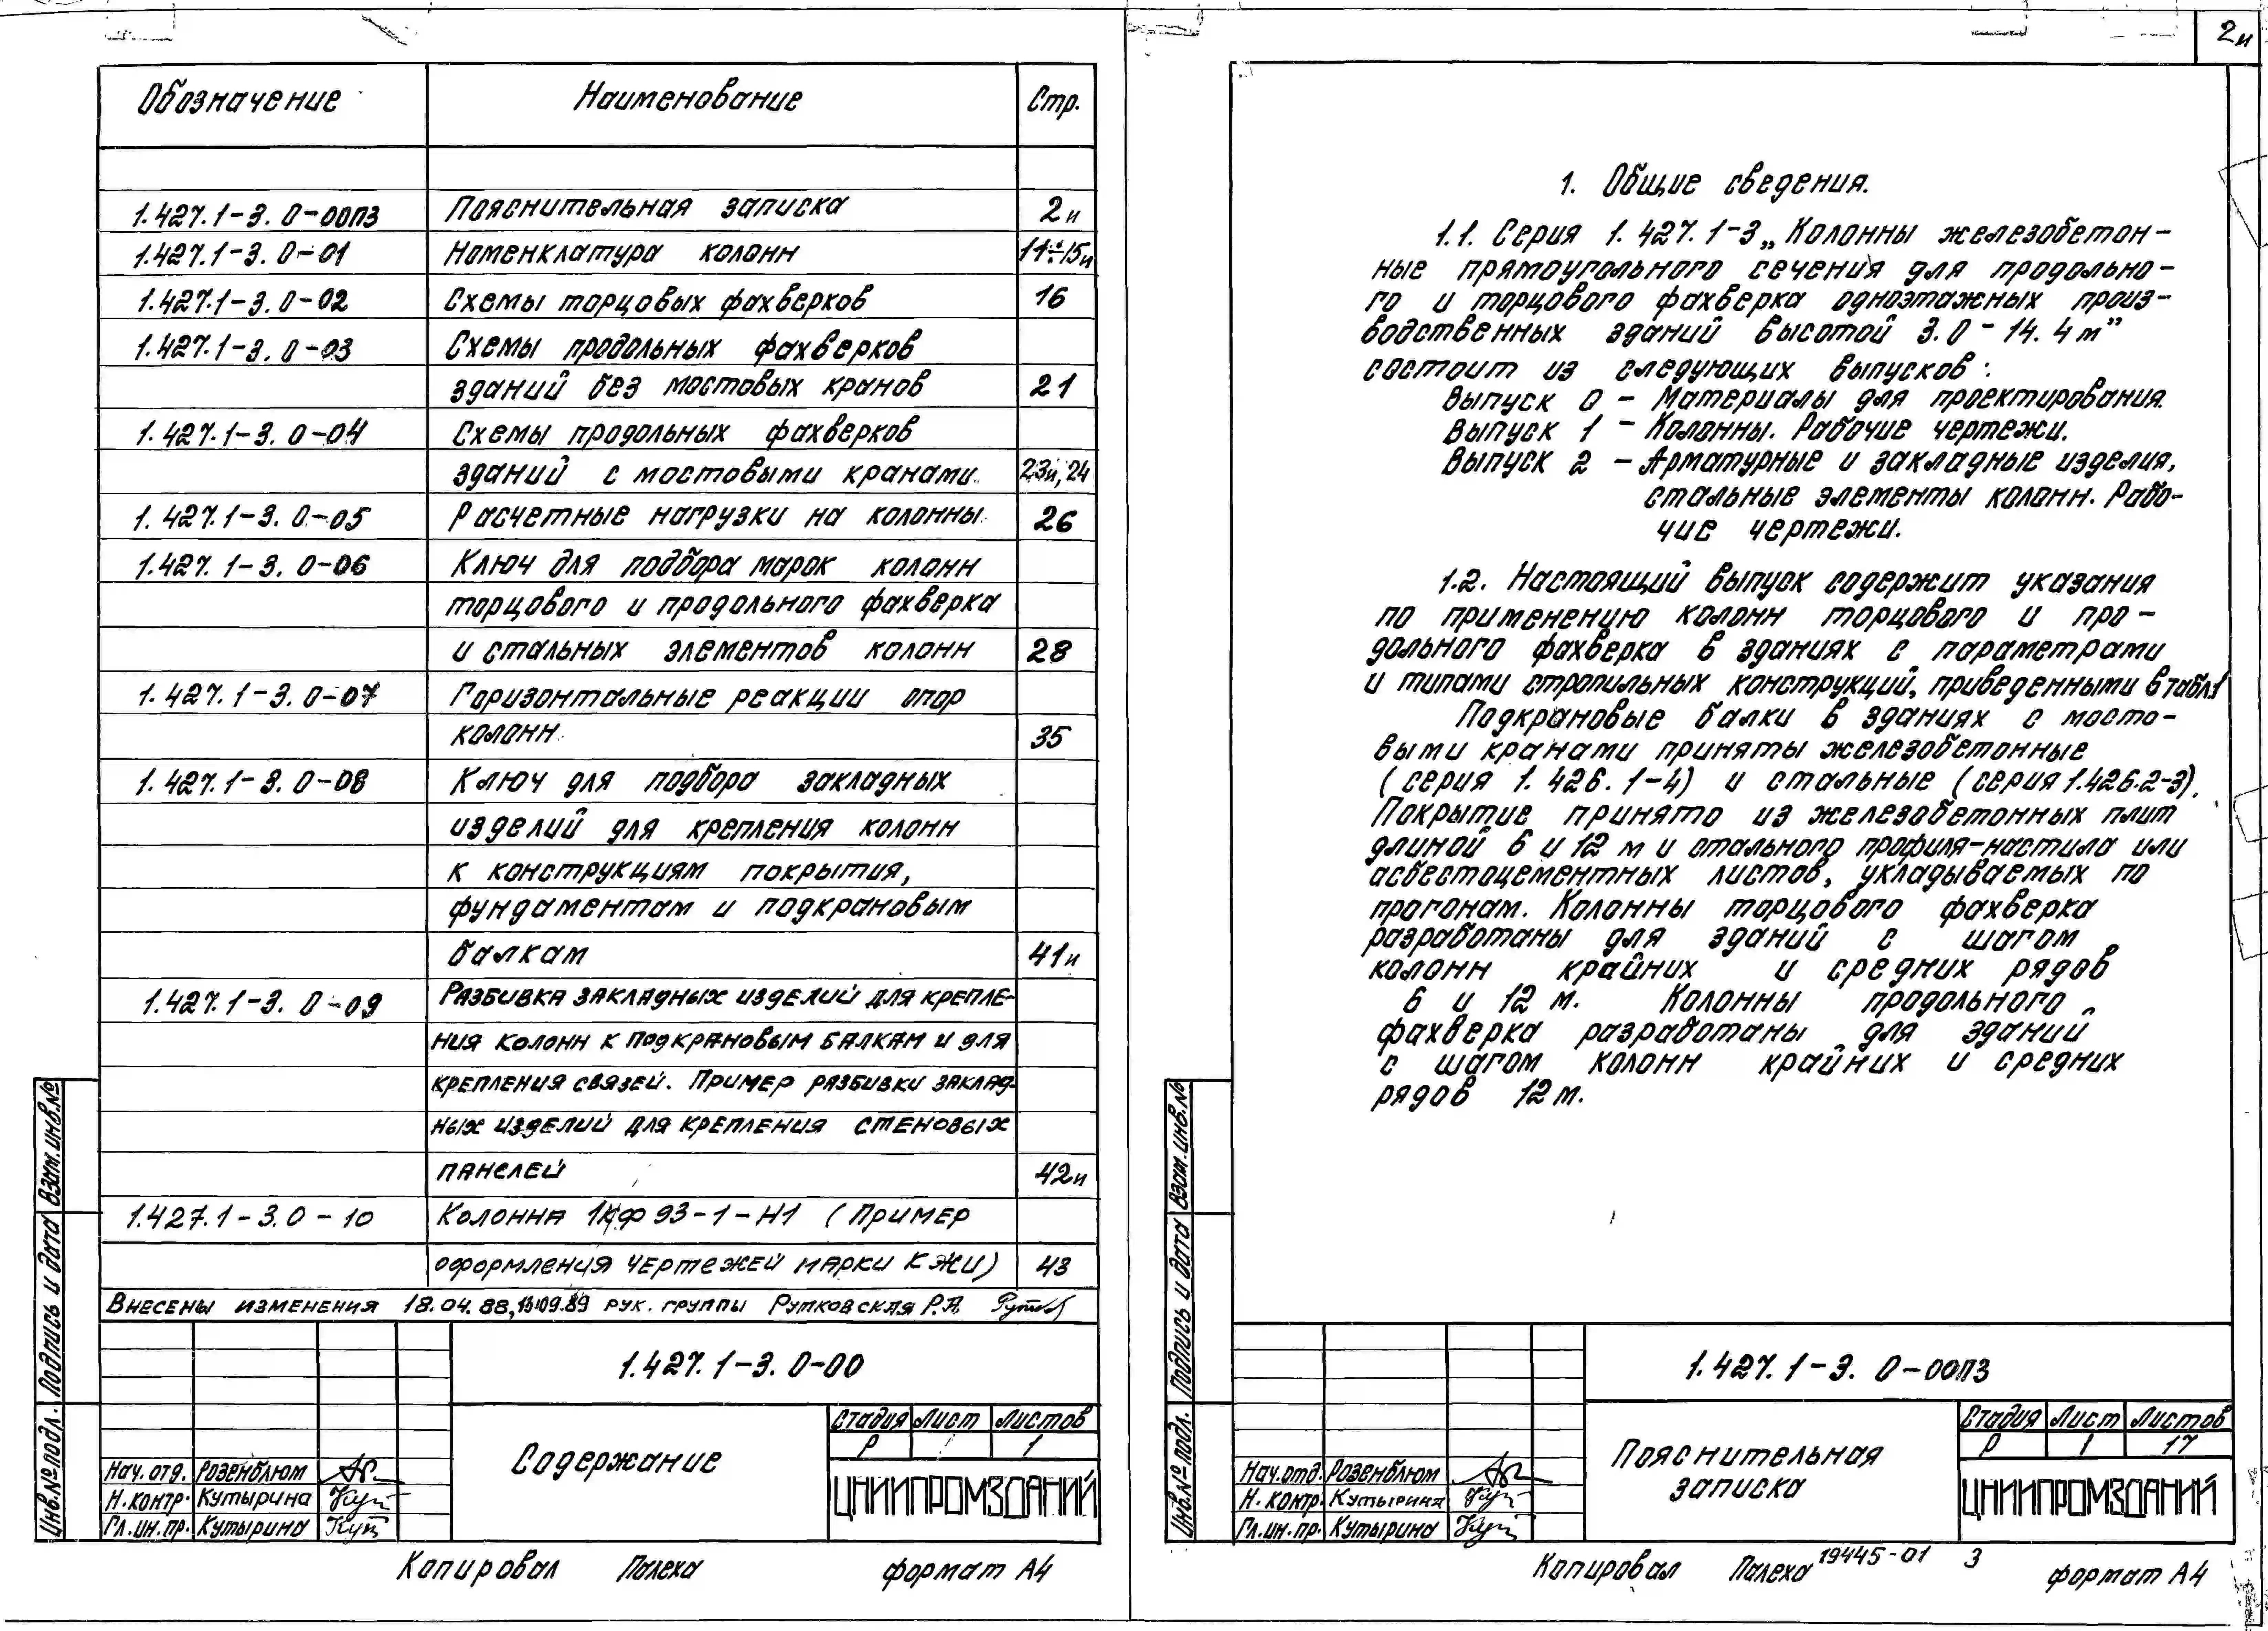 Обозначение Наименование Стр.
1.427.1-3. 0-00ПЗ Пояснительная записка 2и
1.427.1-3. 0-01 Номенклатура колонн 11÷15и
1.427.1-3. 0-02 Схемы торцовых фахверков 16
1.427.1-3. 0-03 Схемы продольных фахверков
зданий без мостовых кранов 21
1.427.1-3. 0-04 Схемы продольных фахверков
зданий с мостовыми кранами 23и, 24
1.427.1-3. 0-05 Расчетные нагрузки на колонны 26
1.427.1-3. 0-06 Ключ для подбора марок колонн
торцового и продольного фахверка
и стальных элементов колонн 28
1.427.1-3. 0-07 Горизонтальные реакции опор
колонн 35
1.427.1-3. 0-08 Ключ для подбора закладных
изделий для крепления колонн
к конструкциям покрытия,
фундаментам и подкрановым
балкам 41и
1.427.1-3. 0-09 Разбивка закладных изделий для крепле-
ния колонн к подкрановым балкам и для
крепления связей. Пример разбивки заклад-
ных изделий для крепления стеновых
панелей 42и
1.427.1-3.0-10 Колонна 1КФ93-1-Н1 (Пример
оформления чертежей марки КЖИ) 43
Внесены изменения 18.04.88, 13.09.89 рук. группы Рутковская Р.А.
1.427.1-3. 0-00
Содержание
Стадия Лист Листов
Р 1
ЦНИИПРОМЗДАНИЙ
Нач. отд. Розенблюм
Н. контр. Кутырина
Гл. ин. пр. Кутырина
Взам. инв. №
Подпись и дата
Инв. № подл.
Копировал Палеха формат А4
2и
1. Общие сведения.
1.1. Серия 1.427.1-3 „Колонны железобетон-
ные прямоугольного сечения для продольно-
го и торцового фахверка одноэтажных произ-
водственных зданий высотой 3.0-14.4 м”
состоит из следующих выпусков:
Выпуск 0 - Материалы для проектирования.
Выпуск 1 - Колонны. Рабочие чертежи.
Выпуск 2 - Арматурные и закладные изделия,
стальные элементы колонн. Рабо-
чие чертежи.
1.2. Настоящий выпуск содержит указания
по применению колонн торцового и про-
дольного фахверка в зданиях с параметрами
и типами стропильных конструкций, приведенными в табл.1
Подкрановые балки в зданиях с мосто-
выми кранами приняты железобетонные
(серия 1.426.1-4) и стальные (серия 1.426.2-3).
Покрытие принято из железобетонных плит
длиной 6 и 12 м и стального профиля-настила или
асбестоцементных листов, укладываемых по
прогонам. Колонны торцового фахверка
разработаны для зданий с шагом
колонн крайних и средних рядов
6 и 12 м. Колонны продольного
фахверка разработаны для зданий
с шагом колонн крайних и средних
рядов 12 м.
1.427.1-3. 0-00ПЗ
Пояснительная
записка
Стадия Лист Листов
Р 1 17
ЦНИИПРОМЗДАНИЙ
Нач. отд. Розенблюм
Н. контр. Кутырина
Гл. ин. пр. Кутырина
Взам. инв. №
Подпись и дата
Инв. № подл.
Копировал Палеха 19445-01 3 формат А4